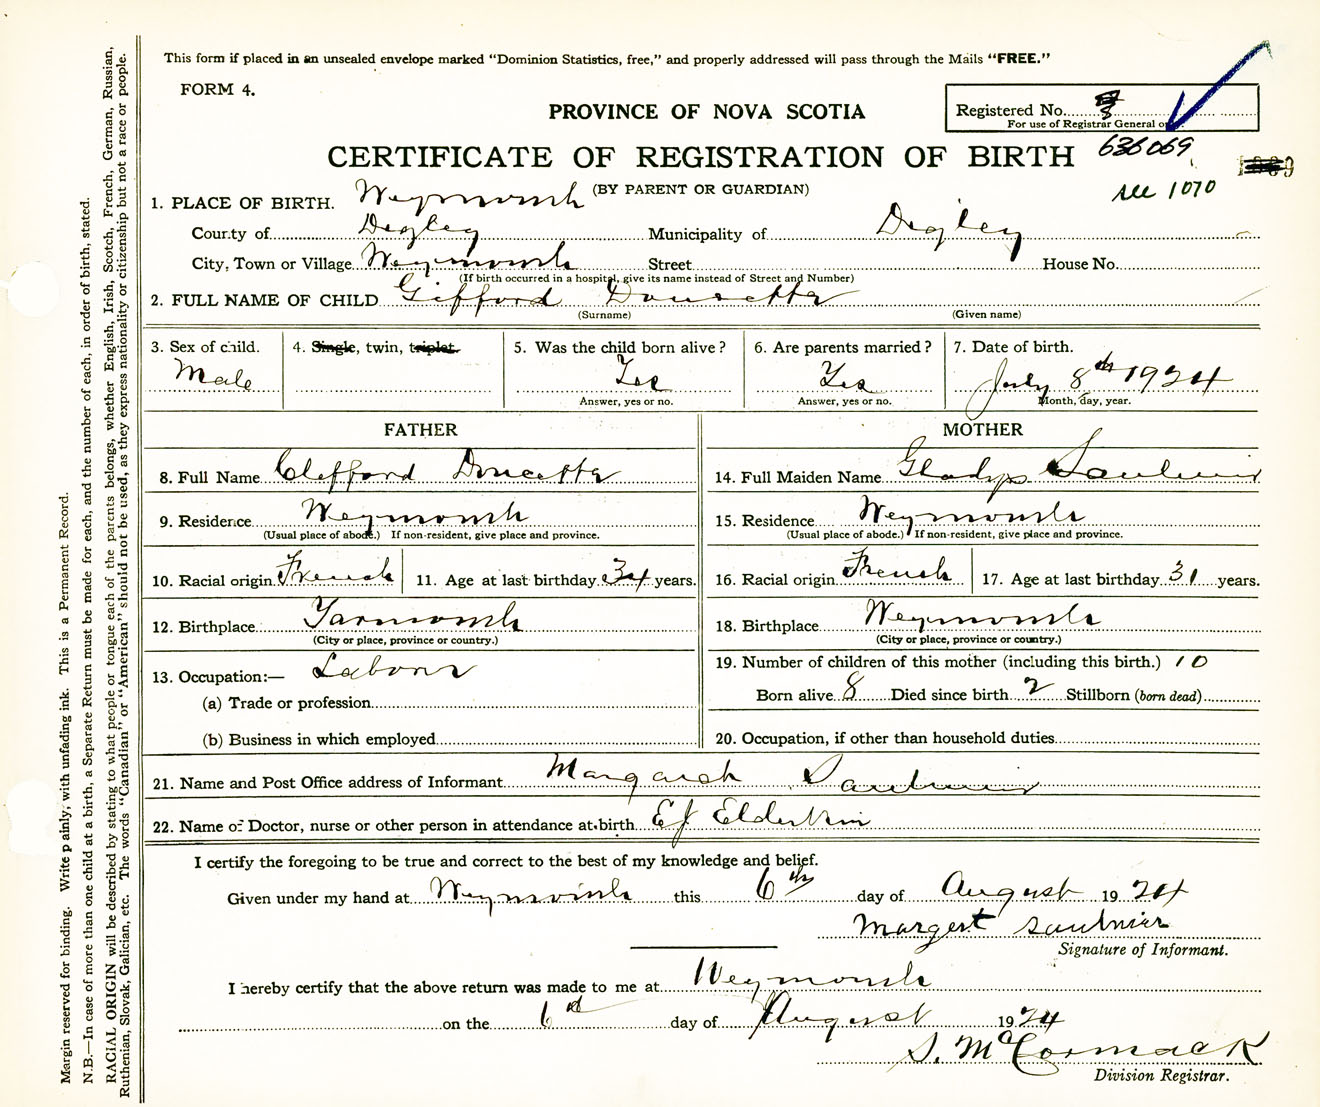 This form if placed in an unsealed envelope marked "Dominion Statistics, free," and properly addressed will pass through the Mails "FREE."
FORM 4.
PROVINCE OF NOVA SCOTIA
Registered No. 8
For use of Registrar General only.
CERTIFICATE OF REGISTRATION OF BIRTH
636069
(BY PARENT OR GUARDIAN)
see 1070
1. PLACE OF BIRTH. Weymouth
County of Digley Municipality of Digley
City, Town or Village Weymouth Street House No.
(If birth occurred in a hospital, give its name instead of Street and Number)
2. FULL NAME OF CHILD Gifford Doucette
(Surname) (Given name)
3. Sex of child. 4. Single, twin, triplet. 5. Was the child born alive? 6. Are parents married? 7. Date of birth.
Male Yes Yes July 8th 1924
Answer, yes or no. Answer, yes or no. Month, day, year.
FATHER MOTHER
8. Full Name Clifford Doucette 14. Full Maiden Name Gladys Saulnier
9. Residence Weymouth 15. Residence Weymouth
(Usual place of abode.) If non-resident, give place and province. (Usual place of abode.) If non-resident, give place and province.
10. Racial origin French 11. Age at last birthday 34 years. 16. Racial origin French 17. Age at last birthday 31 years.
12. Birthplace Yarmouth 18. Birthplace Weymouth
(City or place, province or country.) (City or place, province or country.)
13. Occupation:— Labour 19. Number of children of this mother (including this birth.) 10
(a) Trade or profession Born alive 8 Died since birth 2 Stillborn (born dead)
(b) Business in which employed 20. Occupation, if other than household duties
21. Name and Post Office address of Informant Margaret Saulnier
22. Name of Doctor, nurse or other person in attendance at birth EJ Elderkin
I certify the foregoing to be true and correct to the best of my knowledge and belief.
Given under my hand at Weymouth this 6th day of August 1924
Margert Saulnier
Signature of Informant.
I hereby certify that the above return was made to me at Weymouth
on the 6th day of August 1924
S. McCormack
Division Registrar.
Margin reserved for binding. Write plainly, with unfading ink. This is a Permanent Record.
N.B.—In case of more than one child at a birth, a Separate Return must be made for each, and the number of each, in order of birth, stated.
RACIAL ORIGIN will be described by stating to what people or tongue each of the parents belongs, whether English, Irish, Scotch, French, German, Russian,
Ruthenian, Slovak, Galician, etc. The words "Canadian" or "American" should not be used, as they express nationality or citizenship but not a race or people.